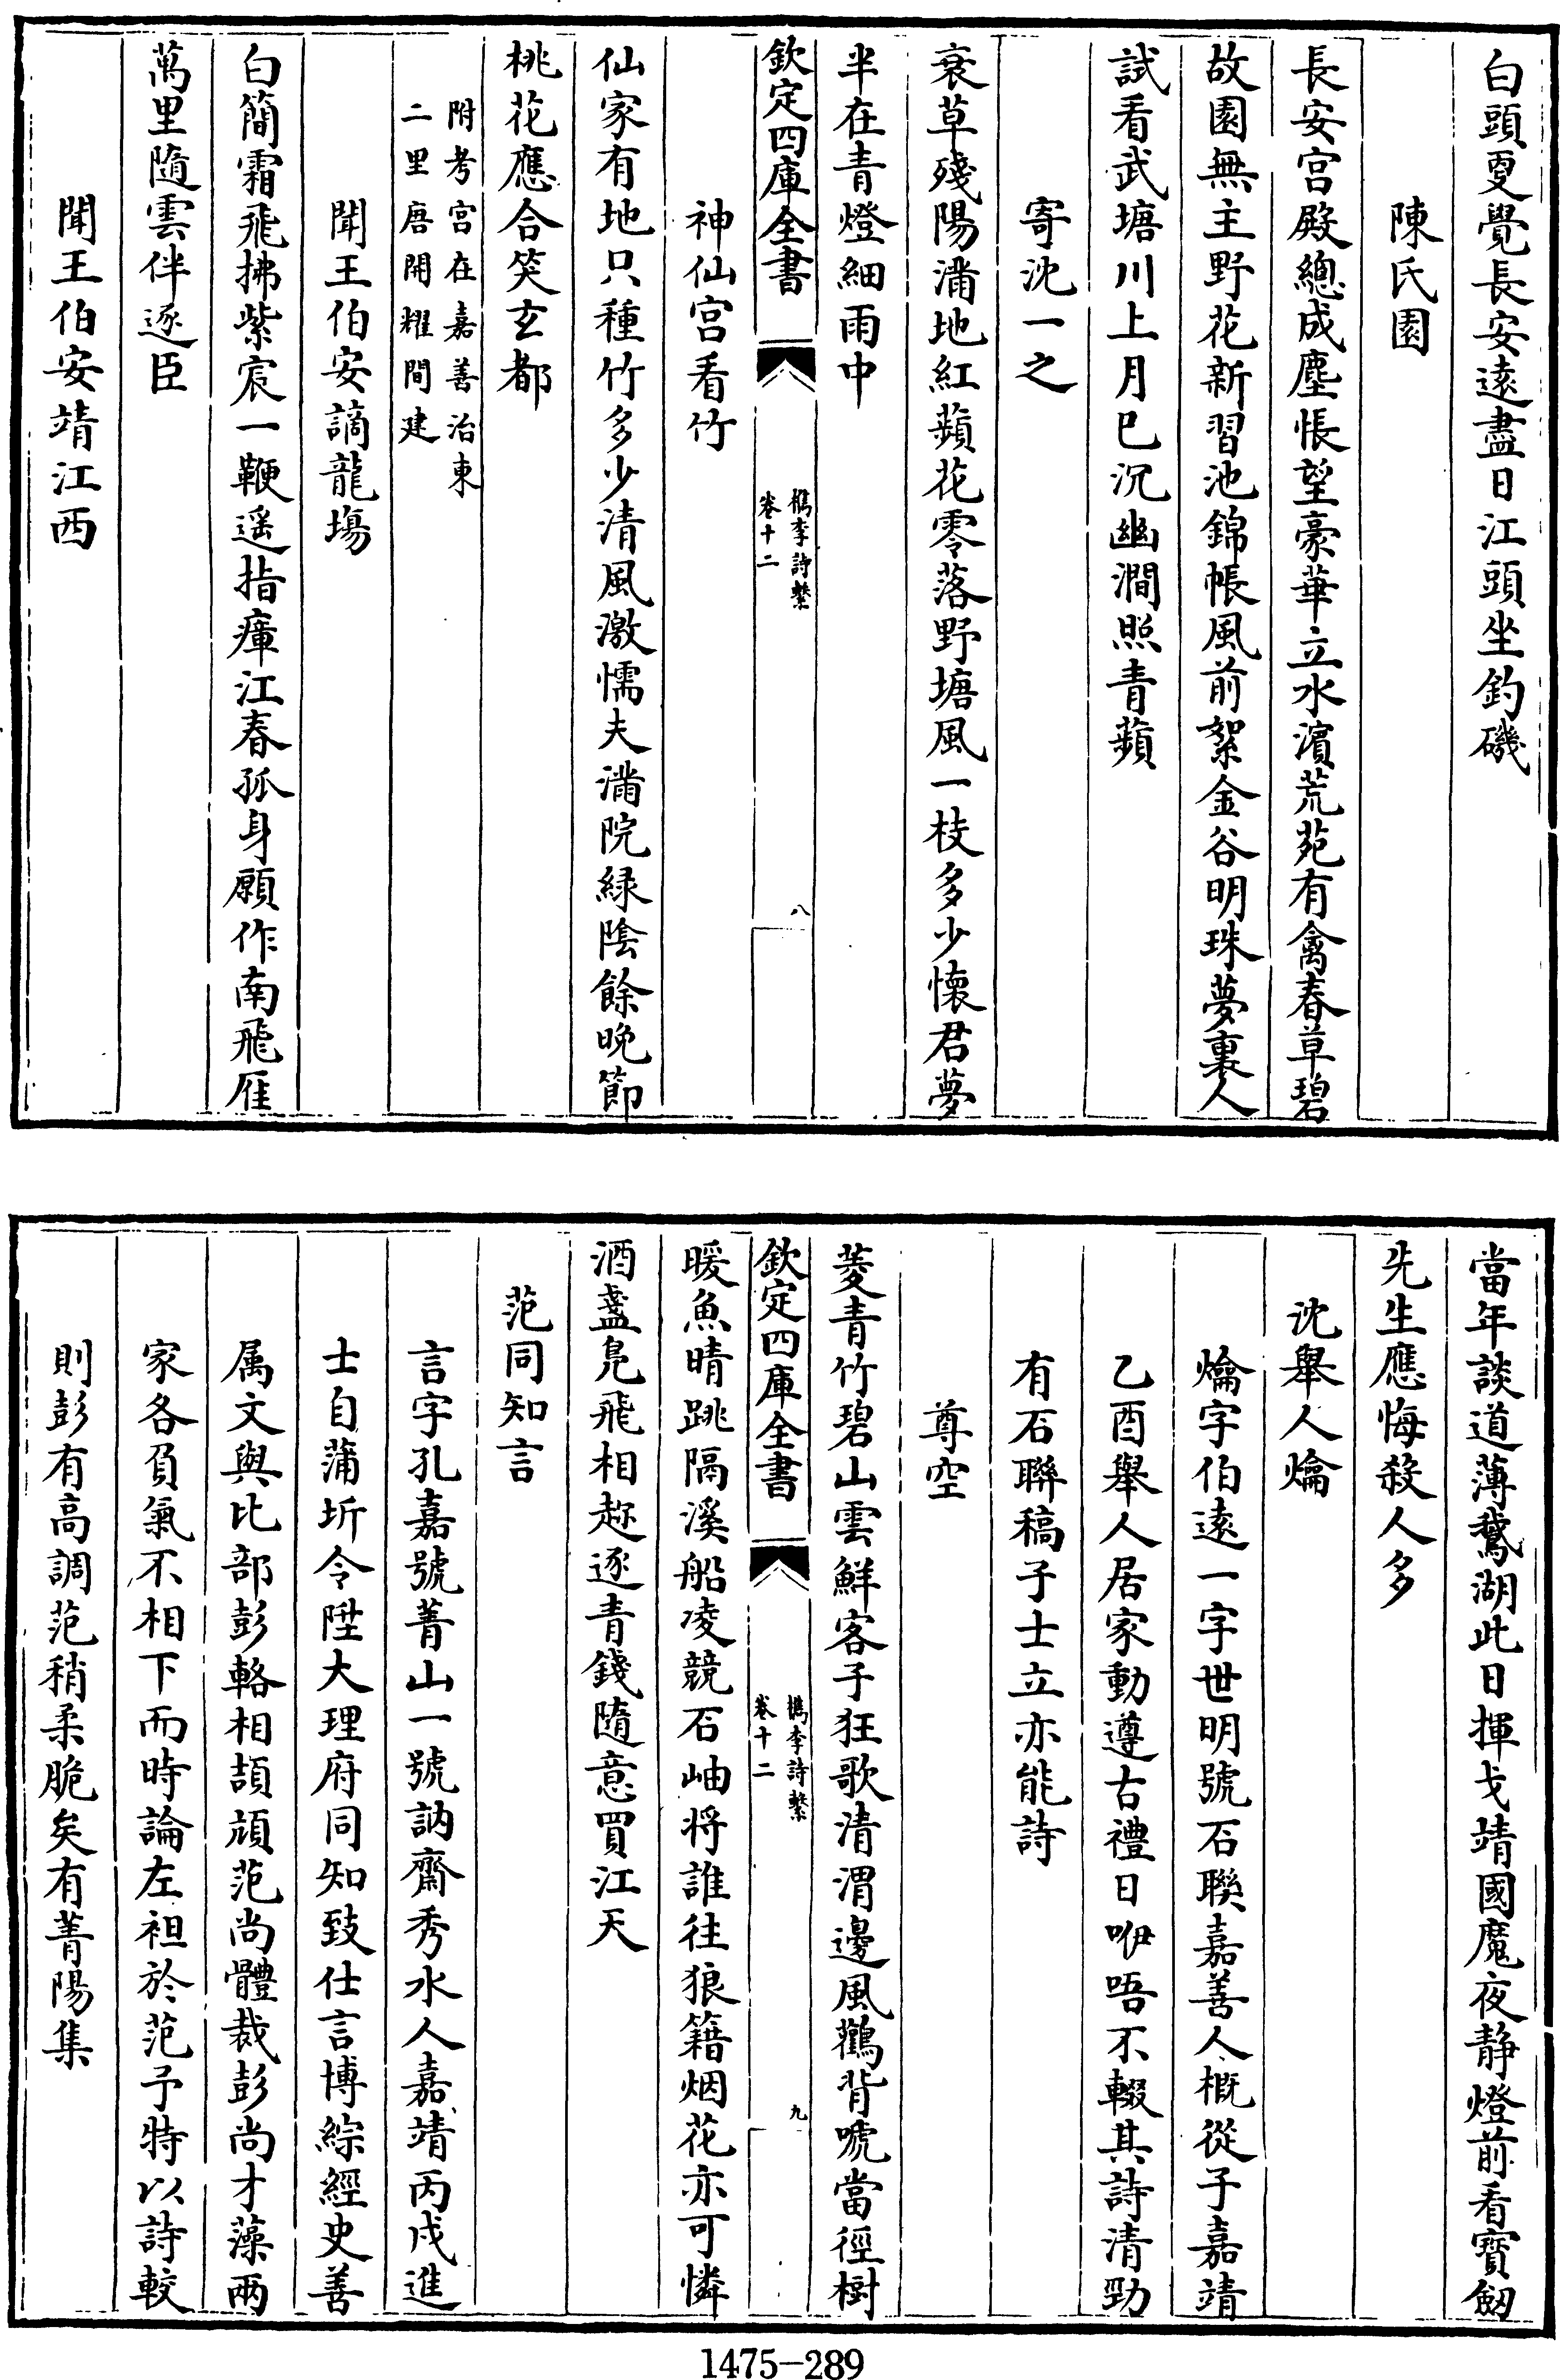 白頭更覺長安遠盡日江頭坐釣磯
陳氏園
長安宫殿總成塵悵望豪華立水濱荒苑有禽春草碧
故園無主野花新習池錦帳風前絮金谷明珠夢裏人
試看武塘川上月已沉幽澗照青蘋
寄沈一之
衰草殘陽滿地紅蘋花零落野塘風一枝多少懷君夢
半在青燈細雨中
欽定四庫全書
檇李詩繫
卷十二
八
神仙宫看竹
仙家有地只種竹多少清風激懦夫滿院緑陰餘晚節
桃花應合笑玄都
附考宫在嘉善治東
二里唐開耀間建
聞王伯安謫龍塲
白簡霜飛拂紫宸一鞭遥指瘴江春孤身願作南飛雁
萬里隨雲伴逐臣
聞王伯安靖江西
當年談道薄鵞湖此日揮戈靖國魔夜静燈前看寶劔
先生應悔殺人多
沈舉人爚
爚字伯逺一字世明號石聯嘉善人概從子嘉靖
乙酉舉人居家動遵古禮日咿唔不輟其詩清勁
有石聯稿子士立亦能詩
尊空
菱青竹碧山雲鮮客子狂歌清渭邊風鸛背唬當徑樹
欽定四庫全書
檇李詩繫
卷十二
九
暖魚晴跳隔溪船凌競石岫将誰往狼籍烟花亦可憐
酒盞鳬飛相趂逐青錢随意買江天
范同知言
言字孔嘉號菁山一號訥齋秀水人嘉靖丙戌進
士自蒲圻令陞大理府同知致仕言博綜經史善
属文與比部彭輅相頡頏范尚體裁彭尚才藻兩
家各負氣不相下而時論左袒於范予特以詩較
則彭有高調范稍柔脆矣有菁陽集
1475-289